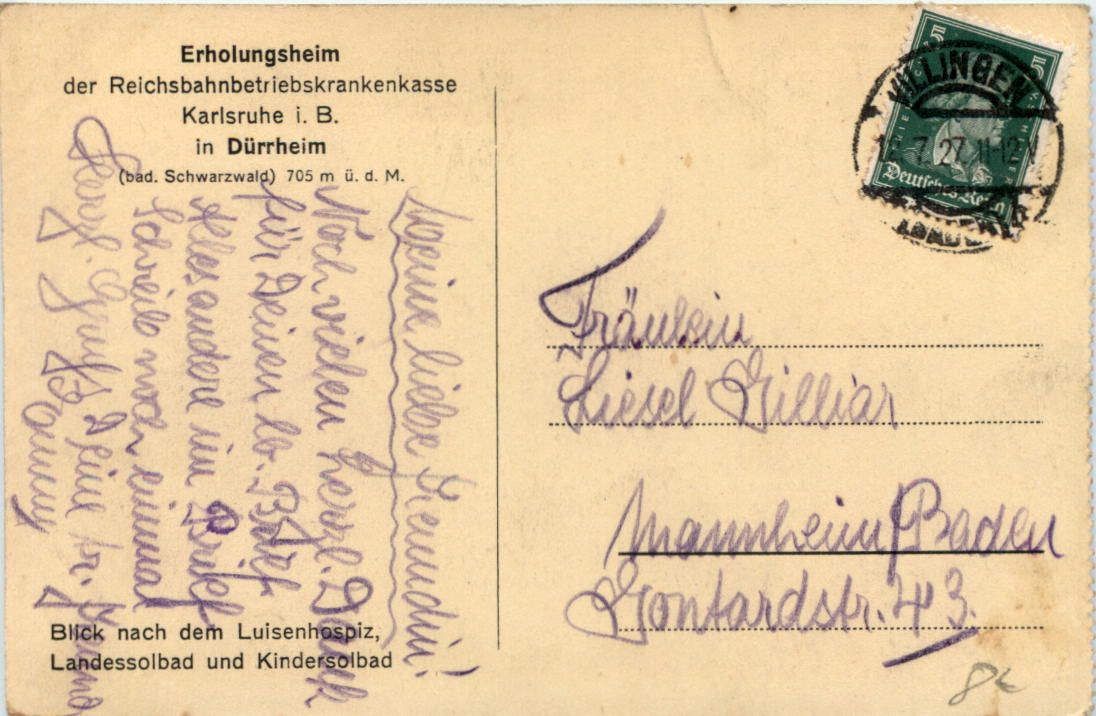 Erholungsheim
der Reichsbahnbetriebskrankenkasse
Karlsruhe i. B.
in Dürrheim
(bad. Schwarzwald) 705 m ü. d. M.
Meine liebe Freundin!
Noch vielen herzl. Dank
für Deinen lb. Brief.
Alles andere im Brief.
Schreib noch einmal
Herzl. Gruß Deine tr.
Blick nach dem Luisenhospiz,
Landessolbad und Kindersolbad
VILLINGEN
7.27. 11-12
5 5
Deutsches Reich
Fräulein
Liesel Gilliar
Mannheim/Baden
Gontardstr. 43.
8€